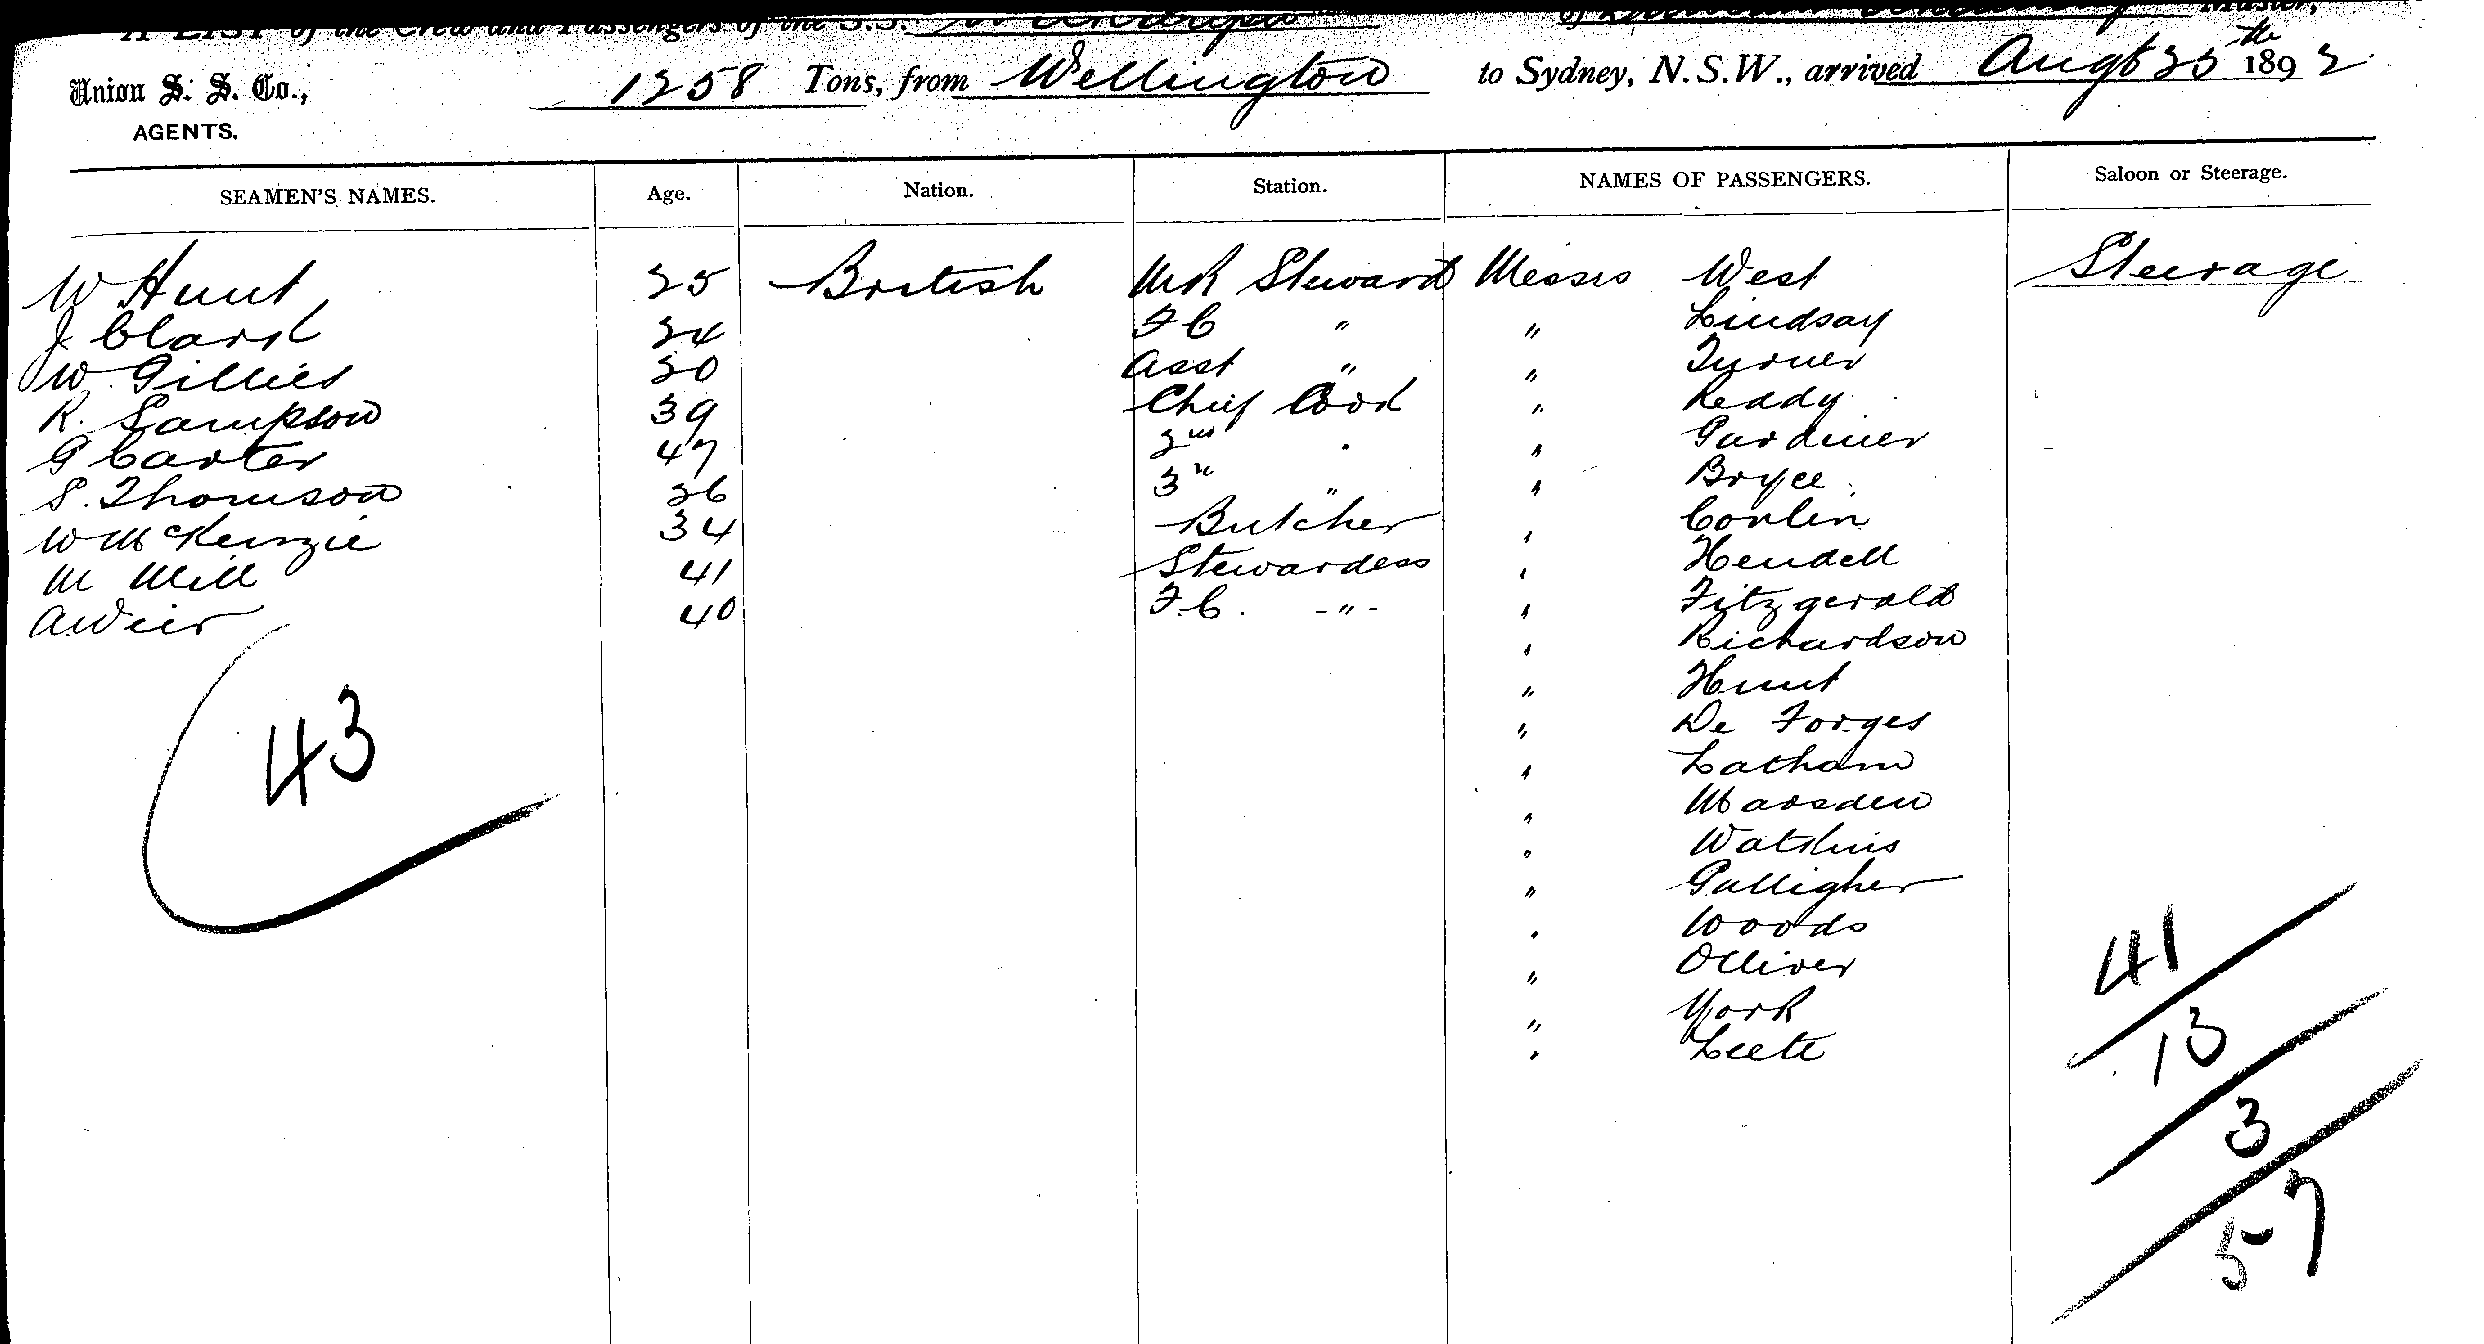 A LIST of the Crew and Passengers of the S.S.
Union S. S. Co., 1258 Tons, from Wellington to Sydney, N.S.W., arrived Augt 25th 1892
AGENTS.
SEAMEN'S NAMES. Age. Nation. Station. NAMES OF PASSENGERS. Saloon or Steerage.
W Hunt 25 British M R Steward Messrs West Steerage
J Clark 24 F C " " Lindsay
W Gillies 20 Asst " " Turner
R. Sampson 39 Chief Cook " Reddy
G Carter 47 2nd " " Gardiner
S. Thomson 26 3rd " " Bryce
W McKenzie 34 Butcher " Conlin
M Mill 41 Stewardess " Hendell
A Weir 40 F. C. -"- " Fitzgerald
" Richardson
" Hunt
" De Forges
" Latham
" Marsden
" Watkins
" Galligher
" Woods
" Olliver
" York
" Leete
43
41
13
3
57